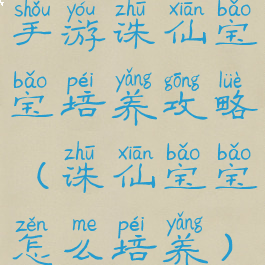 shǒu yóu zhū xiān bǎo
手游诛仙宝
bǎo péi yǎng gōng lüè
宝培养攻略
zhū xiān bǎo bǎo
（诛仙宝宝
zěn me péi yǎng
怎么培养）